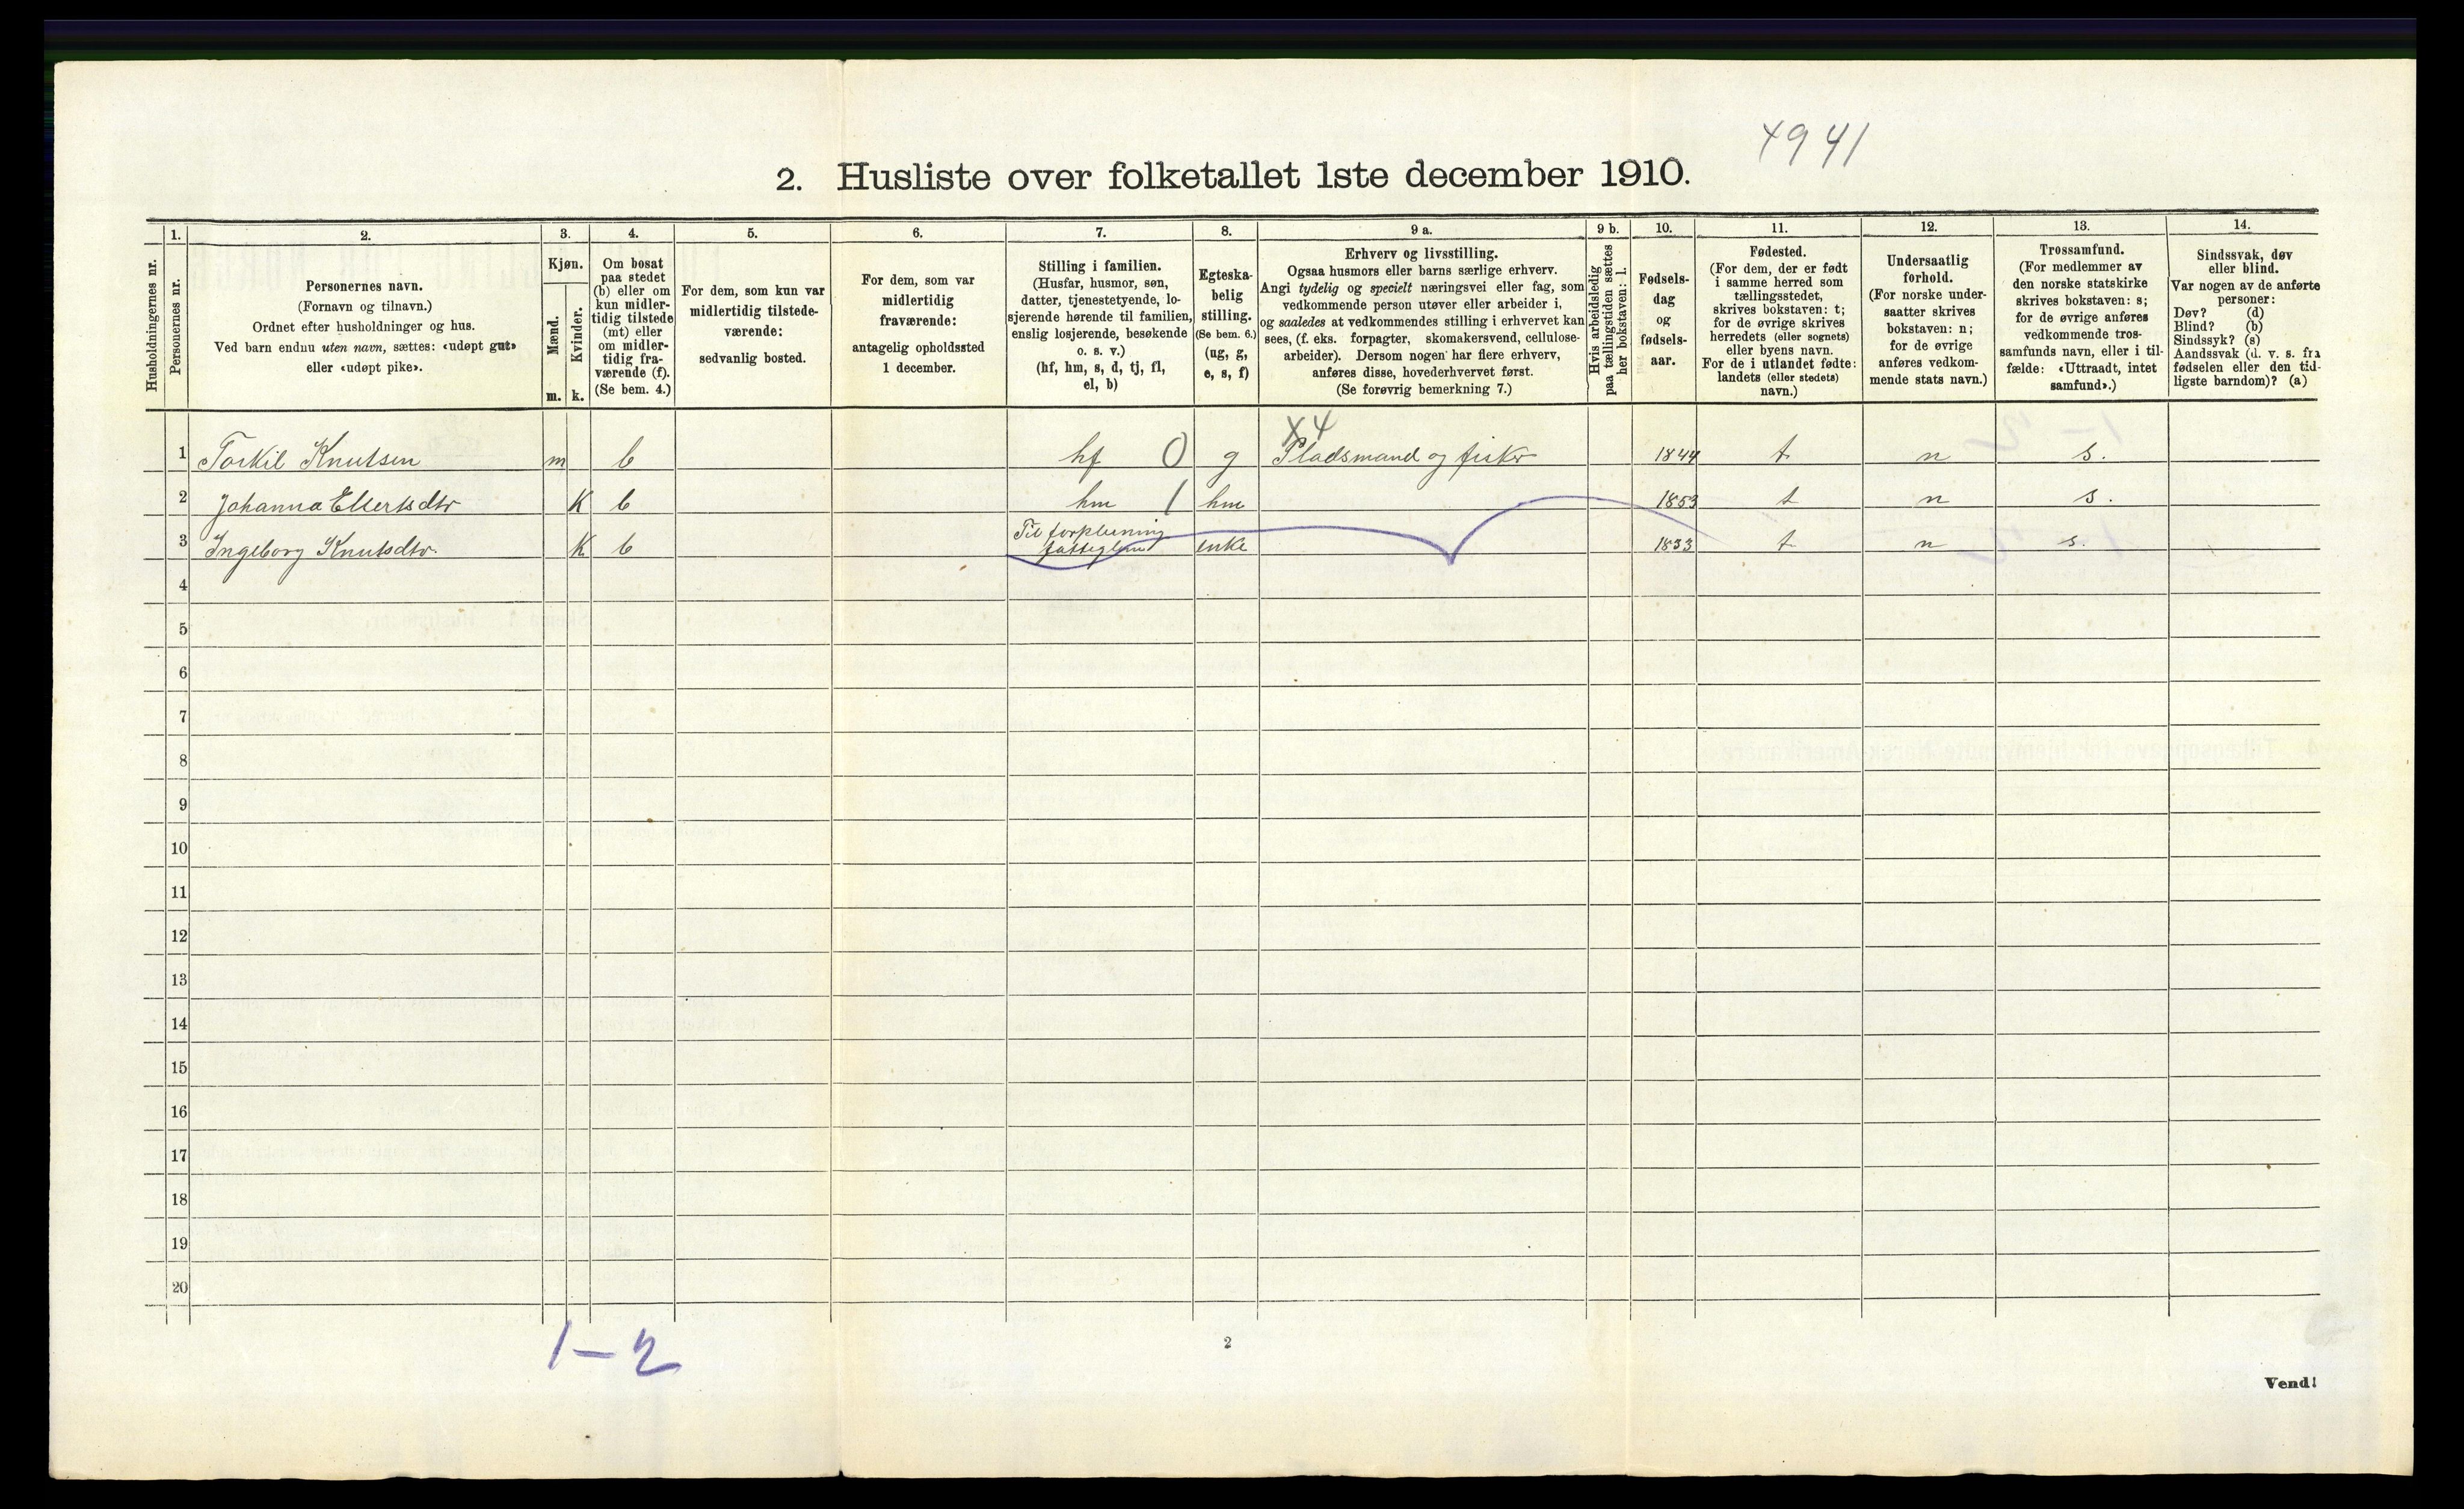 4941
2. Husliste over folketallet 1ste december 1910.
Husholdningernes nr.
1.
Personernes nr.
2.
Personernes navn.
(Fornavn og tilnavn.)
Ordnet efter husholdninger og hus.
Ved barn endnu uten navn, sættes: «udøpt gut»
eller «udøpt pike».
3.
Kjøn.
Mænd.
Kvinder.
m.
k.
4.
Om bosat
paa stedet
(b) eller om
kun midler-
tidig tilstede
(mt) eller
om midler-
tidig fra-
værende (f).
(Se bem. 4.)
5.
For dem, som kun var
midlertidig tilstede-
værende:
sedvanlig bosted.
6.
For dem, som var
midlertidig
fraværende:
antagelig opholdssted
1 december.
7.
Stilling i familien.
(Husfar, husmor, søn,
datter, tjenestetyende, lo-
sjerende hørende til familien,
enslig losjerende, besøkende
o. s. v.)
(hf, hm, s, d, tj, fl,
el, b)
8.
Egteska-
belig
stilling.
(Se bem. 6.)
(ug, g,
e, s, f)
9 a.
Erhverv og livsstilling.
Ogsaa husmors eller barns særlige erhverv.
Angi tydelig og specielt næringsvei eller fag, som
vedkommende person utøver eller arbeider i,
og saaledes at vedkommendes stilling i erhvervet kan
sees, (f. eks. forpagter, skomakersvend, cellulose-
arbeider). Dersom nogen har flere erhverv,
anføres disse, hovederhvervet først.
(Se forøvrig bemerkning 7.)
9 b.
Hvis arbeidsledig
paa tællingstiden sættes
her bokstaven: l.
10.
Fødsels-
dag
og
fødsels-
aar.
11.
Fødested.
(For dem, der er født
i samme herred som
tællingsstedet,
skrives bokstaven: t;
for de øvrige skrives
herredets (eller sognets)
eller byens navn.
For de i utlandet fødte:
landets (eller stedets)
navn.)
12.
Undersaatlig
forhold.
(For norske under-
saatter skrives
bokstaven: n;
for de øvrige
anføres vedkom-
mende stats navn.)
13.
Trossamfund.
(For medlemmer av
den norske statskirke
skrives bokstaven: s;
for de øvrige anføres
vedkommende tros-
samfunds navn, eller i til-
fælde: «Uttraadt, intet
samfund».)
14.
Sindssvak, døv
eller blind.
Var nogen av de anførte
personer:
Døv? (d)
Blind? (b)
Sindssyk? (s)
Aandssvak (d. v. s. fra
fødselen eller den tid-
ligste barndom)? (a)
X4
1 Torkil Knutsen m b hf 0 g Pladsmand og fisker 1844 t n s.
2 Johanna Ellertsdtr K b hm 1 hm 1853 t n s.
Til forpleining
3 Ingeborg Knutsdtr. K b fattiglem enke 1833 t n s.
4
5
6
7
8
9
10
11
12
13
14
15
16
17
18
19
20
1-2
2
Vend!